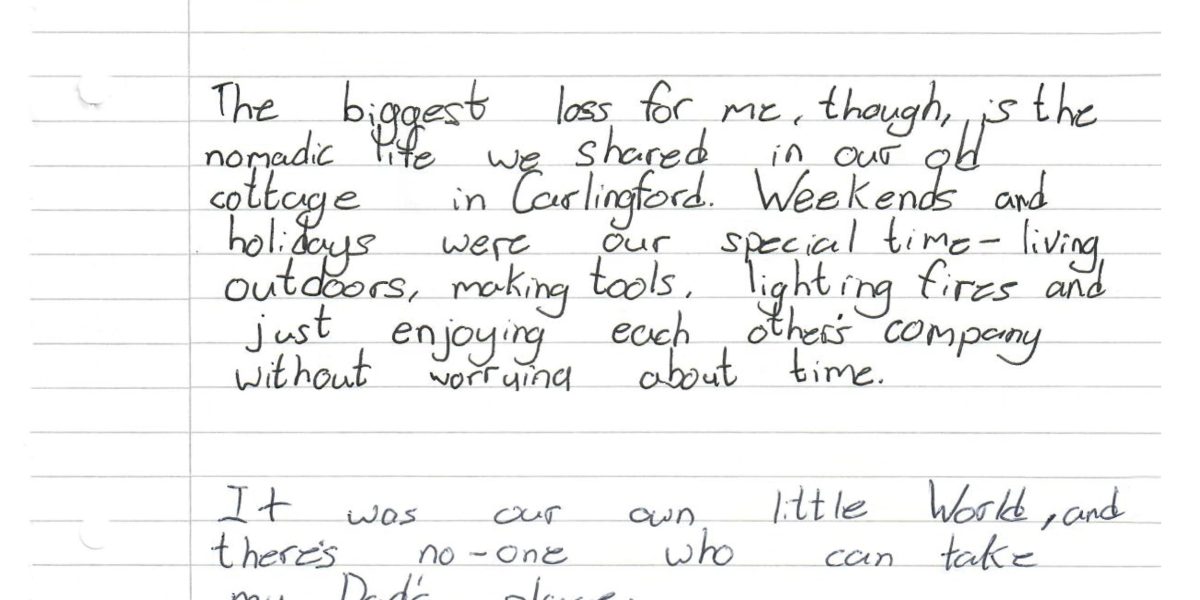 The biggest loss for me, though, is the
nomadic life we shared in our old
cottage in Carlingford. Weekends and
holidays were our special time - living
outdoors, making tools, lighting fires and
just enjoying each other's company
without worrying about time.
It was our own little World, and
there's no-one who can take
my Dad's place.